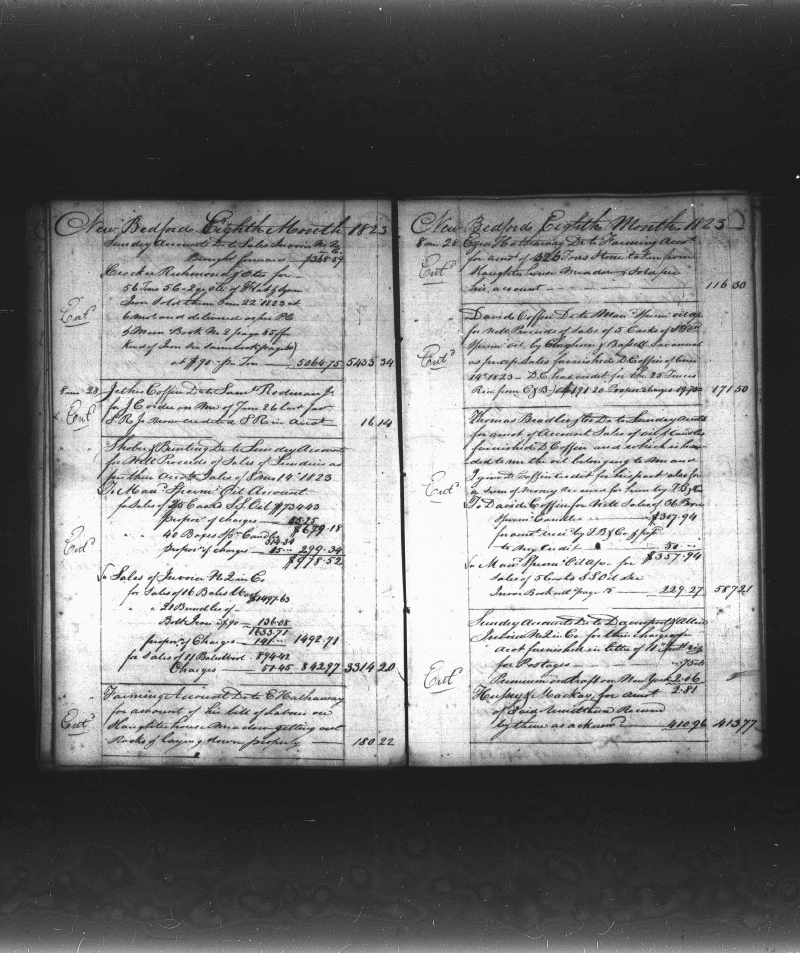 New Bedford Eighth Month 1823
Sundry Accounts Dr to Sales Invoice No 2
Brought forward $368.59
Crocker Richmond & Otis for
56 Tons 5 C 2 qrs of Flat & Square
Iron sold them 22 1823 at
6 mos and delivered as per
Memo Book No 2 page 55 (for
kind of Iron see same book page )
Entd
at $90 pr Ton 5064.75 5433 34
8 mo 28 Jethro Coffin Dr to Saml Rodman Jr
for J C order on me of 26 last for
Entd
S R Jr now credited S R in acct 16 14
Shober & Bunting Dr to Sundry Accounts
for Nett Proceeds of Sales of Sundries as
per their Acct Sales of 8 mo 14 1823
To Manr Sperm Oil Account
for Sales of 20 Casks S S Oil $734.43
Propor of charges 55.25
$679.18
40 Boxes Spr Candles 314.34
Entd
propor of charges 15 299.34
$978.52
To Sales of Invoice No 2 in Co
for Sales of 16 Bales Wool $1497.63
" 21 Bundles of
Bolt Iron 136.08
1633.71
propor of Charges 141 1492.71
for Sales of 11 Bales Wool 894.42
Charges 51.45 842.97 3314 20
Farming Account Dr to E Hathaway
for amount of his bill of labour on
Entd
Slaughterhouse Meadow getting out
Rocks & laying down properly 180 22
New Bedford Eighth Month 1823
8 mo 28 Ezra Hathaway Dr to Farming Acct
for amt of 326 Tons Stone taken from
Entd
Slaughterhouse Meadow & Sold per
his account 116 30
David Coffin Dr to Manr Sperm oil
for Nett Proceeds of Sales of 5 Casks of
Sperm Oil by Bassett
Entd
as pr Sales furnished D Coffin of 6 mo
14 1823 D C has credit for the 25 Tierces
Rice from C & B $191.20 Cooper charges 19.70 171 50
Thomas Bradley & Co Dr to Sundry Accts
for amot of Account Sales of oil & Candles
furnished D Coffin and which is handed
to me the oil belonging to me and
Entd
I give D Coffin credit for his part also for
a sum of money received for him by T B & Co
To David Coffin for Nett Sales of 36 Boxes
Sperm Candles $307.94
for amt recd by T B & Co
to my credit 50
$357.94
To Manr Sperm Oil for
Sales of 5 Casks S S Oil See
Invoice Book No 1 page 15 229.27 587 21
Sundry Accounts Dr to Davenport & Allen
Invoice No 2 in Co for their charges in
acct furnished in letter of
for Postages .75
Premium on drafts on New York 2.06
Entd
2.81
Hussey & Mackay for amount
of said Remittance Received
by them as acknowd 410.96 413 77